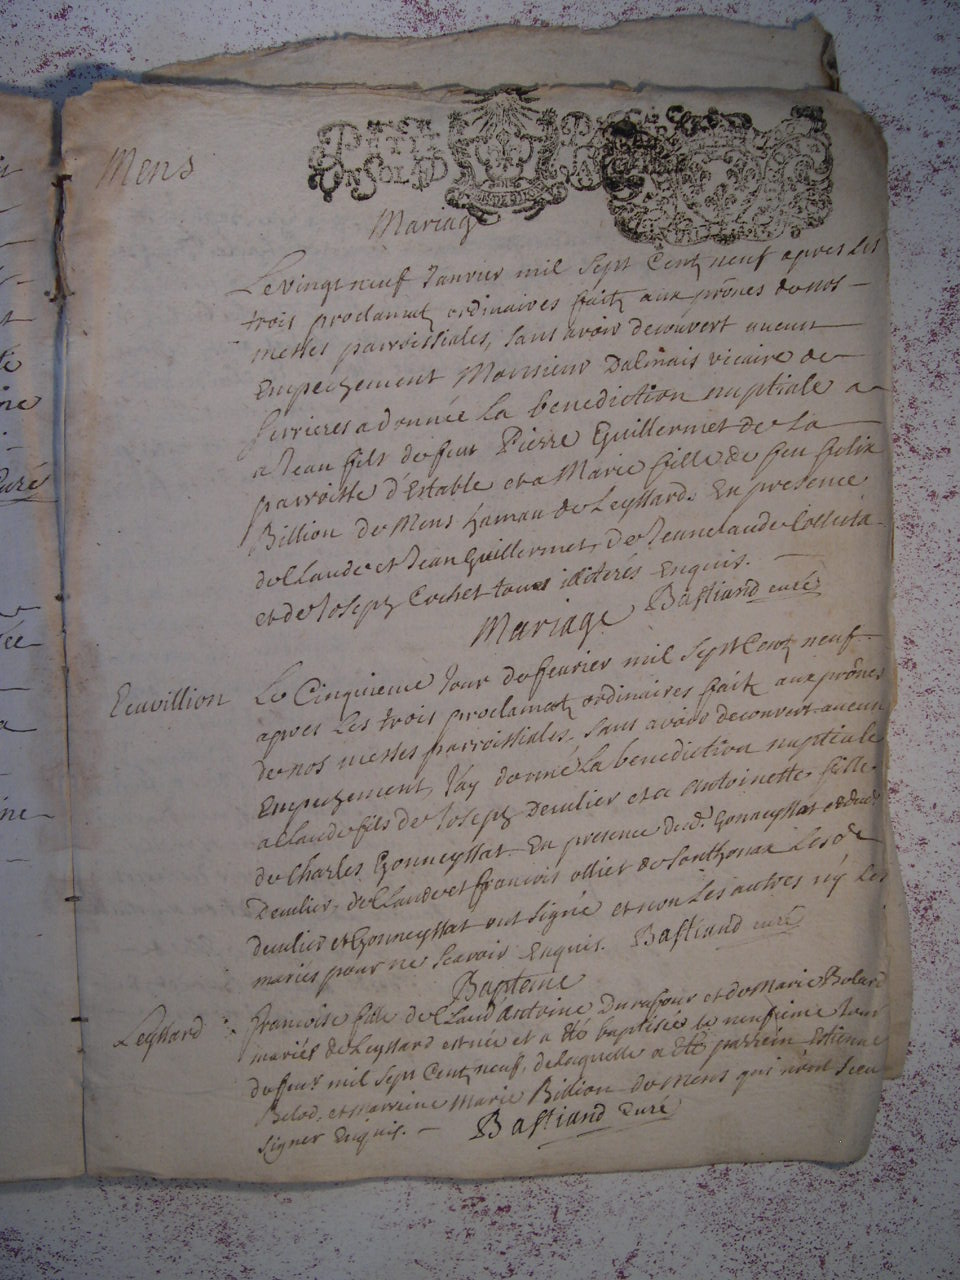 Mens
PETIT
UN SOL
Mariage
Le vingt neuf Janvier mil sept Centz neuf apres les
trois proclamatz ordinaires faitz aux prônes de nos
messes parroissiales, sans avoir decouvert aucun
Empechement Monsieur Dalmais vicaire de
serrieres a donnée la benediction nuptiale a
a Jean fils de feu Pierre Guillermet de la
parroisse d'Estable et a Marie fille de feu felix
Billion de Mens hamau de Leyssard. En presence
de Claude et Jean Guillermet, de Jeanclaude
et de Joseph Cochet tous illiterés Enquis.
Bastiand curé
Mariage
Ecuvillion
Le Cinquieme Jour de feuvrier mil sept Centz neuf
apres les trois proclamatz ordinaires faitz aux prônes
de nos messes parroissiales, sans avoir decouvert aucun
Empechement, J'ay donné la benediction nuptiale
a Claude fils de Joseph Deculier et a Antoinette fille
de Charles Gonneyssat. En presence dud. Gonneyssat et dud.
Deculier, de Claude et francois ollier de Lesd.
deculier et Gonneyssat ont signé et non les autres ny les
mariés pour ne scavoir Enquis. Bastiand curé
Bapteme
Leyssard :
francoise fille de Claud Antoine Durafour et de Marie
mariés de Leyssard est née et a été baptisée le neufieme Jour
de feur. mil sept Centz neuf, de laquelle a été parrein Estienne
Belod, et marreine Marie Billion de Mens qui n'ont sceu
signer Enquis. Bastiand Curé